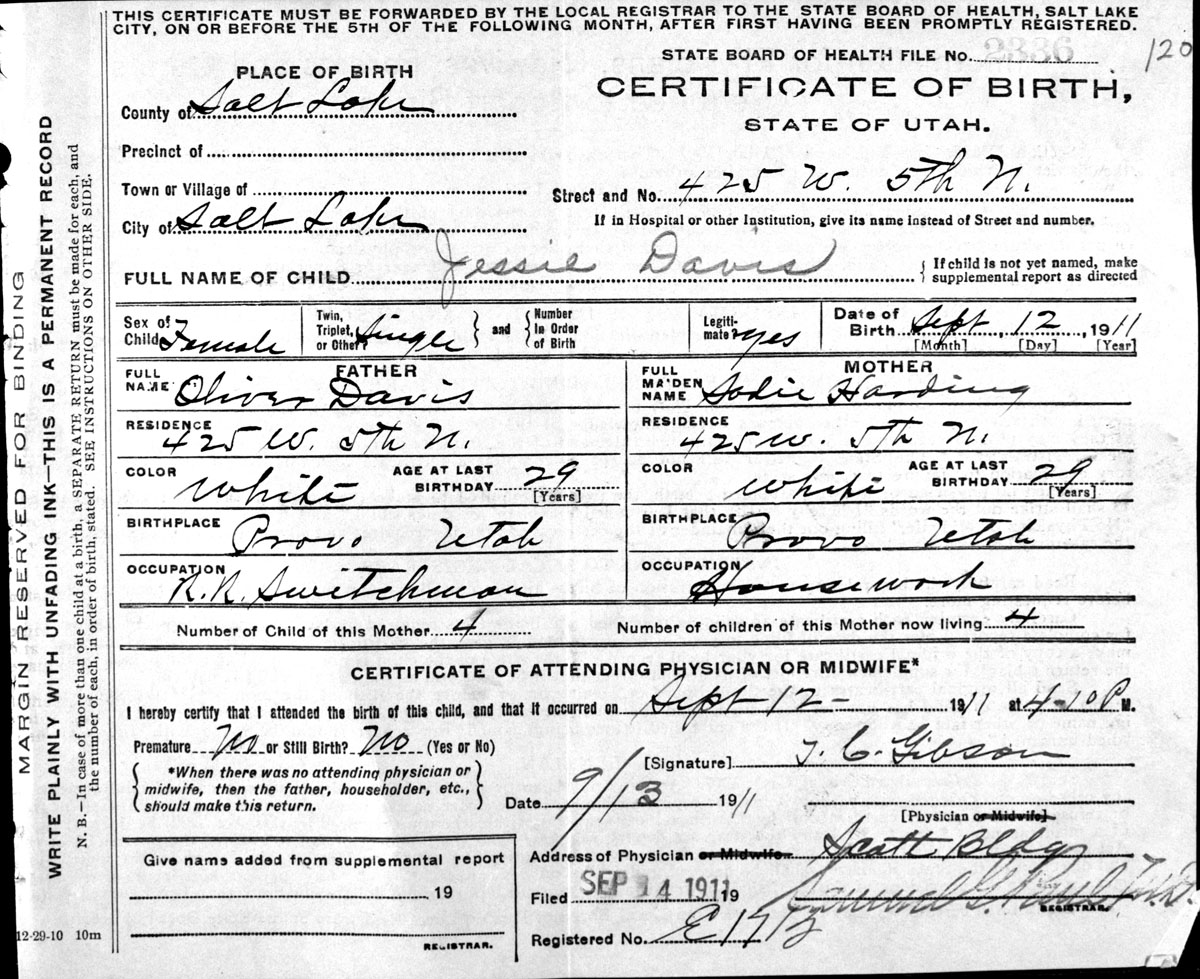 THIS CERTIFICATE MUST BE FORWARDED BY THE LOCAL REGISTRAR TO THE STATE BOARD OF HEALTH, SALT LAKE
CITY, ON OR BEFORE THE 5TH OF THE FOLLOWING MONTH, AFTER FIRST HAVING BEEN PROMPTLY REGISTERED.
STATE BOARD OF HEALTH FILE No. 2336
120
PLACE OF BIRTH
CERTIFICATE OF BIRTH,
STATE OF UTAH.
County of Salt Lake
Precinct of
Town or Village of
Street and No. 425 W. 5th N.
City of Salt Lake
If in Hospital or other Institution, give its name instead of Street and number.
FULL NAME OF CHILD Jessie Davis
{ If child is not yet named, make
supplemental report as directed
Sex of Child Female
Twin, Triplet, or Other? Single } and { Number In Order of Birth
Legiti-mate? yes
Date of Birth Sept 12, 1911
[Month] [Day] [Year]
FATHER
FULL NAME Oliver Davis
RESIDENCE 425 W. 5th N.
COLOR White
AGE AT LAST BIRTHDAY 29
[Years]
BIRTHPLACE Provo Utah
OCCUPATION R.R. Switchman
MOTHER
FULL MA'DEN NAME Sadie Harding
RESIDENCE 425 W. 5th N.
COLOR White
AGE AT LAST BIRTHDAY 29
[Years]
BIRTHPLACE Provo Utah
OCCUPATION Housework
Number of Child of this Mother 4
Number of children of this Mother now living 4
CERTIFICATE OF ATTENDING PHYSICIAN OR MIDWIFE*
I hereby certify that I attended the birth of this child, and that it occurred on Sept 12 - 1911 at 4-10 P M.
Premature No or Still Birth? No (Yes or No)
{ *When there was no attending physician or
midwife, then the father, householder, etc.,
should make this return. }
[Signature] T. C. Gibson
Date 9/13 1911
[Physician or Midwife]
Address of Physician or Midwife Scott Bldg
Filed SEP 14 1911 19
REGISTRAR.
Registered No. E1712
Give name added from supplemental report
19
REGISTRAR.
12-29-10 10m
MARGIN RESERVED FOR BINDING
WRITE PLAINLY WITH UNFADING INK—THIS IS A PERMANENT RECORD
N. B.—In case of more than one child at a birth, a SEPARATE RETURN must be made for each, and
the number of each, in order of birth, stated. SEE INSTRUCTIONS ON OTHER SIDE.